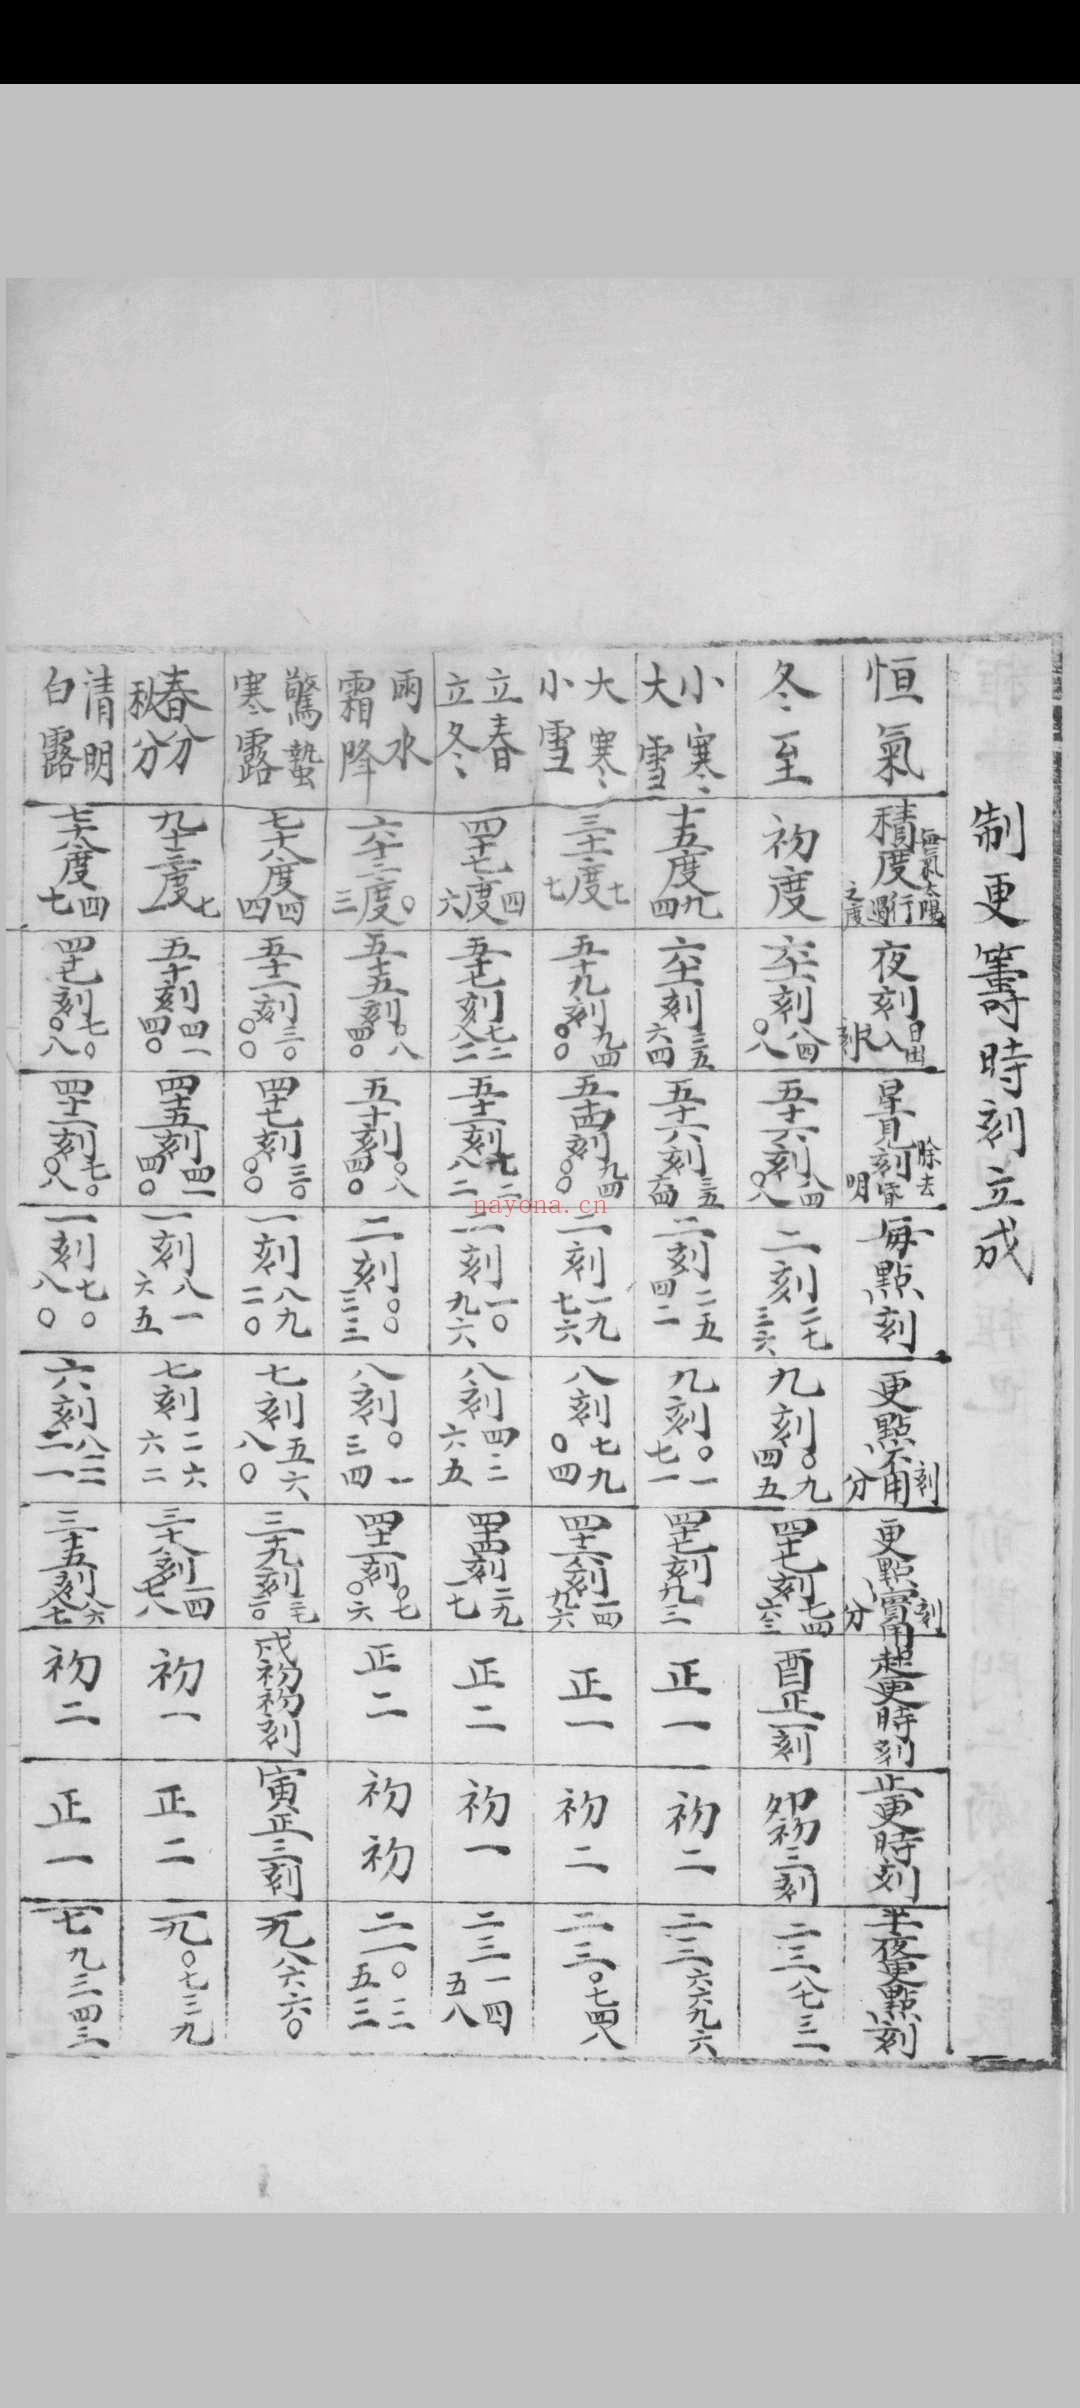 制更籌時刻立成
恒氣 積度 每氣太陽行過之度 夜刻 日出入刻 星見刻 除去昏明 每點刻 更點不用刻分 更點實用刻分 起更時刻 止更時刻 半夜更點刻
冬至 初度 六十一刻八四〇八 五十六刻八四〇八 二刻二七三六 九刻〇九四五 四十七刻七四六三 酉正一刻 卯初三刻 二三八七三一
小寒大雪 十五度九四 六十一刻三五六四 五十六刻三五六四 二刻二五四二 九刻〇一七一 四十七刻九三 正一 初二 二三六六九六
大寒小雪 三十一度七七 五十九刻九四〇〇 五十四刻九四〇〇 二刻一九七六 八刻七九〇四 四十六刻一四九六 正一 初二 二三〇七四八
立春立冬 四十七度四六 五十七刻七二八二 五十二刻七二八二 二刻一〇九六 八刻四三六五 四十四刻二九一七 正二 初一 二二一四五八
雨水霜降 六十三度〇三 五十五刻〇八四〇 五十刻〇八四〇 二刻〇〇三三 八刻〇一三四 四十二刻〇七〇六 正二 初初 二一〇三五三
驚蟄寒露 七十八度四四 五十二刻三〇〇〇 四十七刻三〇〇〇 一刻八九二〇 七刻五六八〇 三十九刻七三二〇 戌初初刻 寅正三刻 一九八六六〇
春分秋分 九十三度七一 五十刻四一四〇 四十五刻四一四〇 一刻八一六五 七刻二六六二 三十八刻一四七八 初一 正二 一九〇七三九
清明白露 七十八度四七 四十七刻七〇〇八 四十二刻七〇〇八 一刻七〇八〇 六刻八三二一 三十五刻八六八七 初二 正一 一七九三四三
nayona.cn